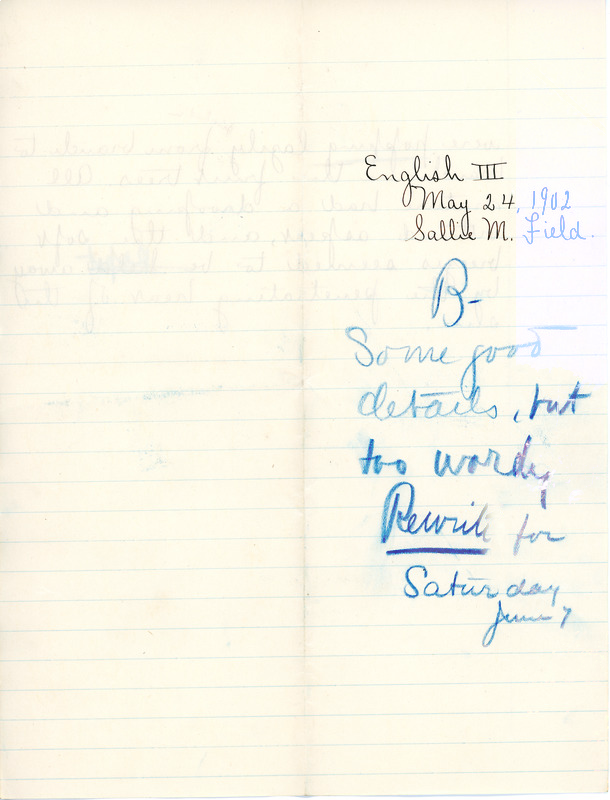 English III
May 24, 1902
Sallie M. Field.
B-
Some good
details, but
too wordy
Rewrite for
Saturday
June 7